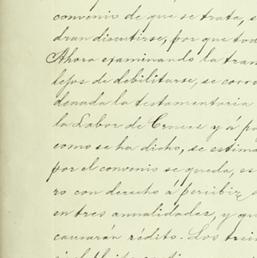 convenio de que se trata, s
dran discutirse, por que tod
Ahora examinando la tran
lejos de debilitarse, se corro
denada la testamentaria
la Labor de Cruces y á pa
como se ha dicho, se estim
por el convenio se queda, es
ro con derecho á percibir
en tres anualidades, y qu
causarán rédito. Los trein